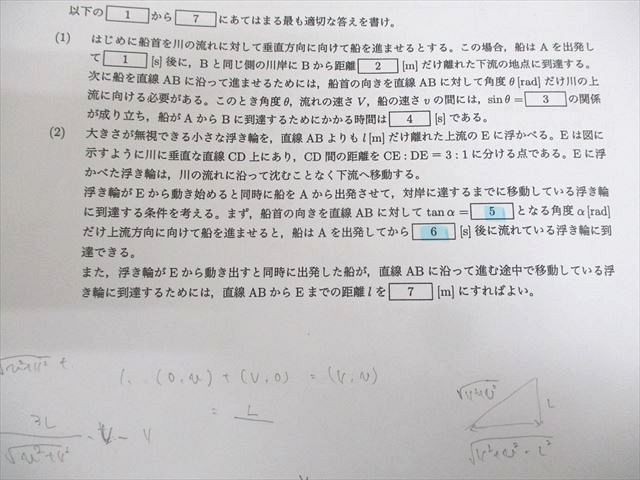 以下の 1 から 7 にあてはまる最も適切な答えを書け。
(1) はじめに船首を川の流れに対して垂直方向に向けて船を進ませるとする。この場合，船は A を出発し
て 1 [s] 後に，B と同じ側の川岸に B から距離 2 [m] だけ離れた下流の地点に到達する。
次に船を直線 AB に沿って進ませるためには，船首の向きを直線 AB に対して角度 θ [rad] だけ川の上
流に向ける必要がある。このとき角度 θ，流れの速さ V，船の速さ v の間には，sin θ = 3 の関係
が成り立ち，船が A から B に到達するためにかかる時間は 4 [s] である。
(2) 大きさが無視できる小さな浮き輪を，直線 AB よりも l [m] だけ離れた上流の E に浮かべる。E は図に
示すように川に垂直な直線 CD 上にあり，CD 間の距離を CE : DE = 3 : 1 に分ける点である。E に浮
かべた浮き輪は，川の流れに沿って沈むことなく下流へ移動する。
浮き輪が E から動き始めると同時に船を A から出発させて，対岸に達するまでに移動している浮き輪
に到達する条件を考える。まず，船首の向きを直線 AB に対して tan α = 5 となる角度 α [rad]
だけ上流方向に向けて船を進ませると，船は A を出発してから 6 [s] 後に流れている浮き輪に到
達できる。
また，浮き輪が E から動き出すと同時に出発した船が，直線 AB に沿って進む途中で移動している浮
き輪に到達するためには，直線 AB から E までの距離 l を 7 [m] にすればよい。
(0, v) + (V, 0) = (V, v)
= L
3L
L